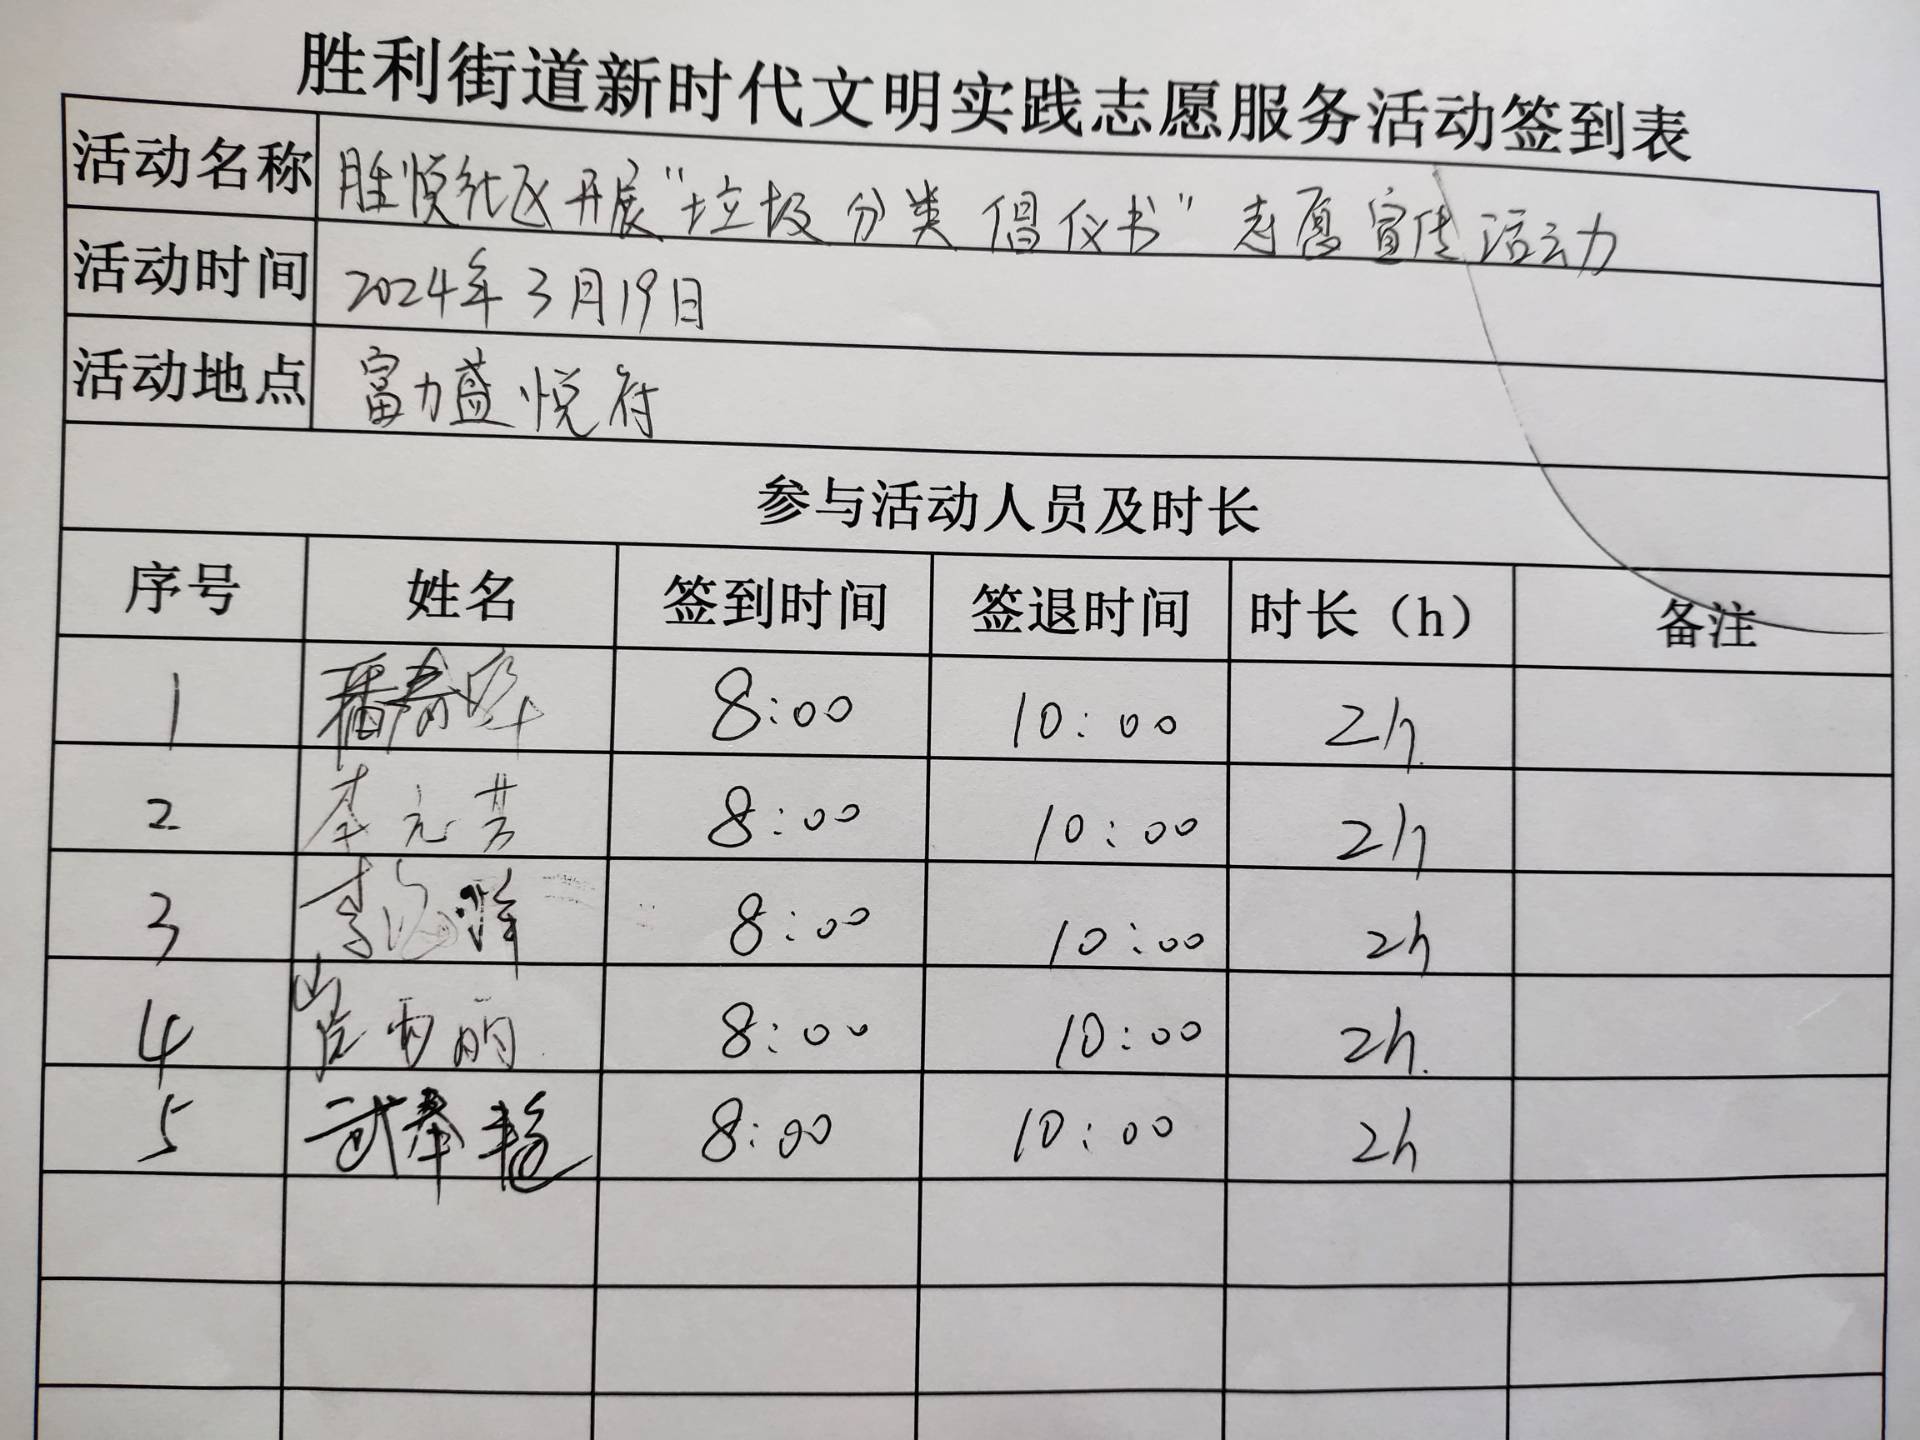 胜利街道新时代文明实践志愿服务活动签到表
活动名称 胜悦社区开展"垃圾分类倡仪书"志愿宣传活动
活动时间 2024年3月19日
活动地点 富力盛悦府
参与活动人员及时长
序号 姓名 签到时间 签退时间 时长（h） 备注
1 8:00 10:00 2h
2 李元芳 8:00 10:00 2h
3 李海洋 8:00 10:00 2h
4 8:00 10:00 2h
5 武春艳 8:00 10:00 2h